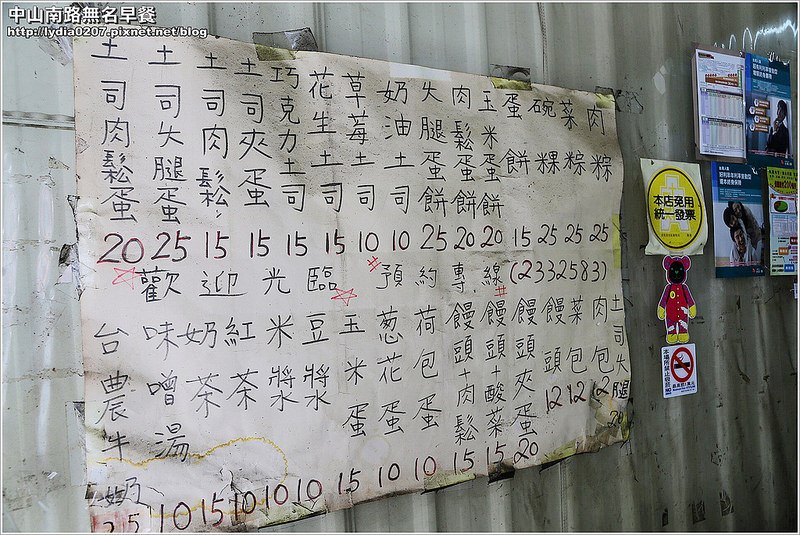 中山南路無名早餐
http://lydia0207.pixnet.net/blog
土司肉鬆蛋 20
土司火腿蛋 25
土司肉鬆 15
土司夾蛋 15
巧克力土司 15
花生土司 15
草莓土司 10
奶油土司 10
火腿蛋餅 25
肉鬆蛋餅 20
玉米蛋餅 20
蛋餅 15
碗粿 25
菜粽 25
肉粽 25
歡迎光臨 #預約專線(2332583)#
台農牛奶 25
味噌湯 10
奶茶 15
紅茶 10
米漿 10
豆漿 10
玉米蛋 15
葱花蛋 10
荷包蛋 10
饅頭+肉鬆 15
饅頭+酸菜 15
饅頭夾蛋 20
饅頭 12
菜包 12
肉包 12
土司火腿 20
本店免用
統一發票